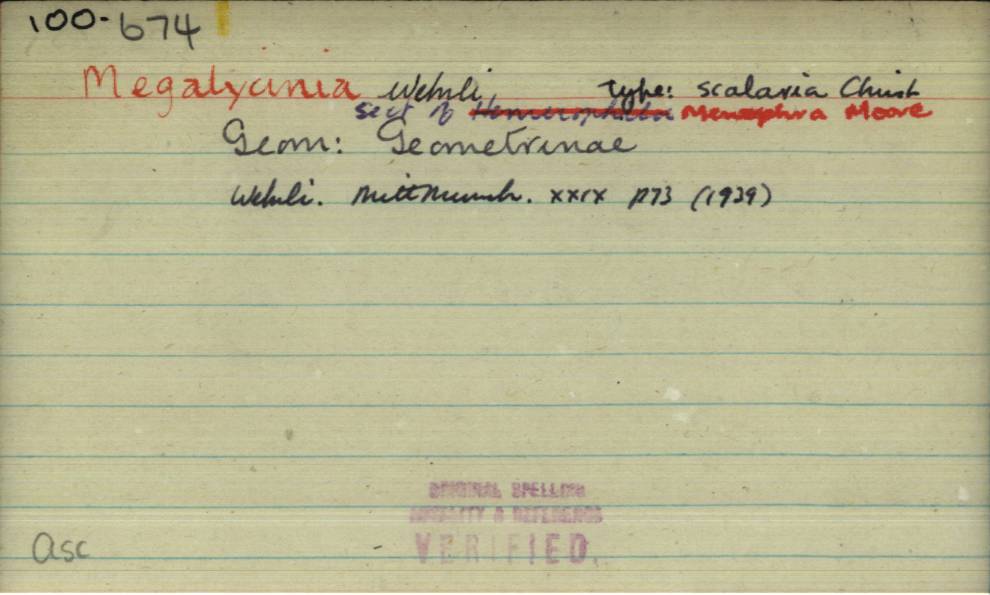 100-674
Megalycinia Wehrli type: scalaria Christ
sect of Hemerophila Menophra Moore
Geom: Geometrinae
Wehrli. Mitt Münch. xxix p73 (1939)
ORIGINAL SPELLING
AUTHORITY & REFERENCE
VERIFIED.
asc